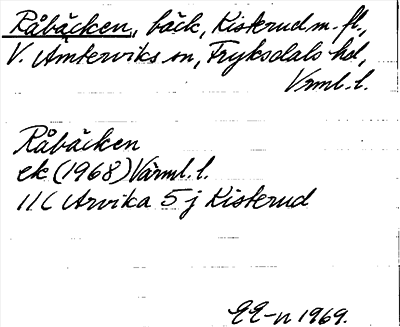 Råbäcken, bäck, Kisterud m. fl.,
V. Ämterviks sn, Fryksdals hd,
Vrml. l.
Råbäcken
ek (1968) Värml. l.
11C Arvika 5j Kisterud
1969.